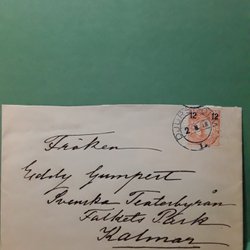 12 12
Fröken
Eddy Gumpert
Svenska Teaterbyrån
Folkets Park
Kalmar